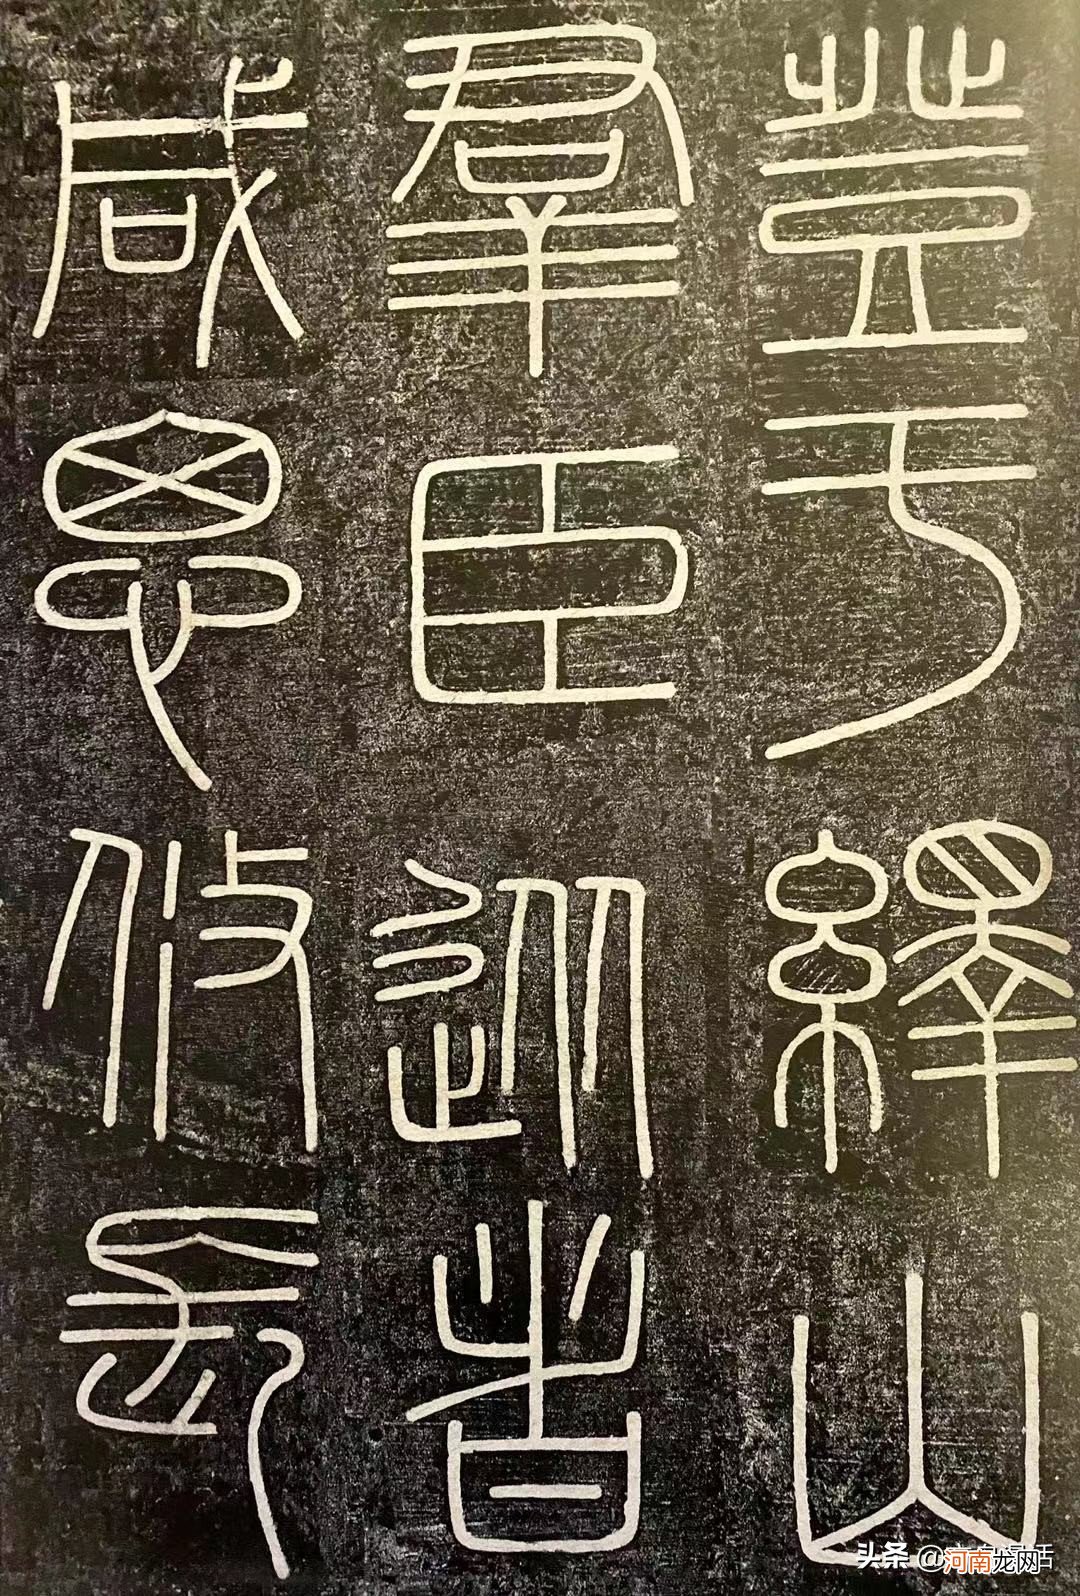 登于繹山
羣臣從者
咸思攸長
头条 @
河南龙网
活